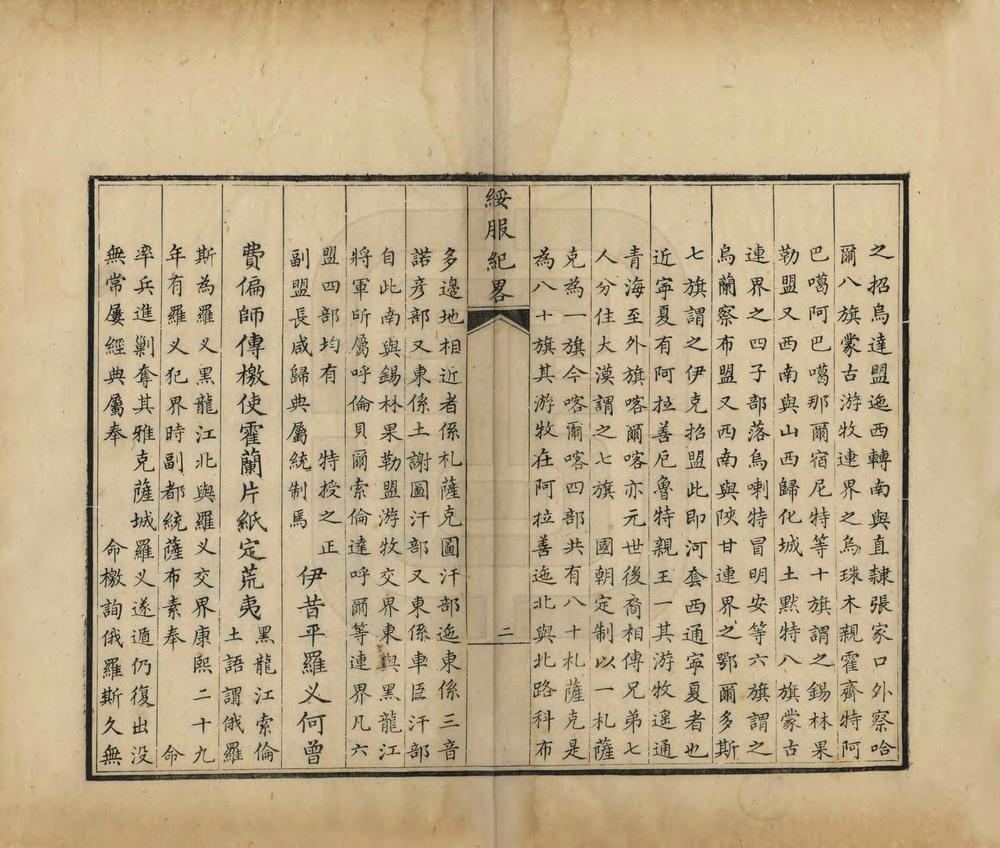 之招烏達盟迤西轉南與直隸張家口外察哈
爾八旗蒙古游牧連界之烏珠木親霍齊特阿
巴噶阿巴噶那爾宿尼特等十旗謂之錫林果
勒盟又西南與山西歸化城土默特八旗蒙古
連界之四子部落烏喇特冒明安等六旗謂之
烏蘭察布盟又西南與陝甘連界之鄂爾多斯
七旗謂之伊克招盟此即河套西通寧夏者也
近寧夏有阿拉善厄魯特親王一其游牧遥通
青海至外旗喀爾喀亦元世後裔相傳兄弟七
人分住大漠謂之七旗 國朝定制以一札薩
克為一旗今喀爾喀四部共有八十札薩克是
為八十旗其游牧在阿拉善迤北與北路科布
綏服紀畧
二
多邊地相近者係札薩克圖汗部迤東係三音
諾彥部又東係土謝圖汗部又東係車臣汗部
自此南與錫林果勒盟游牧交界東與黑龍江
將軍所屬呼倫貝爾索倫達呼爾等連界凡六
盟四部均有 特授之正
副盟長咸歸典屬統制焉
伊昔平羅义何曾
費偏師傳檄使霍蘭片紙定荒夷
黑龍江索倫
土語謂俄羅
斯為羅义黑龍江北與羅义交界康熙二十九
年有羅义犯界時副都統薩布素奉 命
率兵進剿奪其雅克薩城羅义遂遁仍復出没
無常屢經典屬奉 命檄詢俄羅斯久無